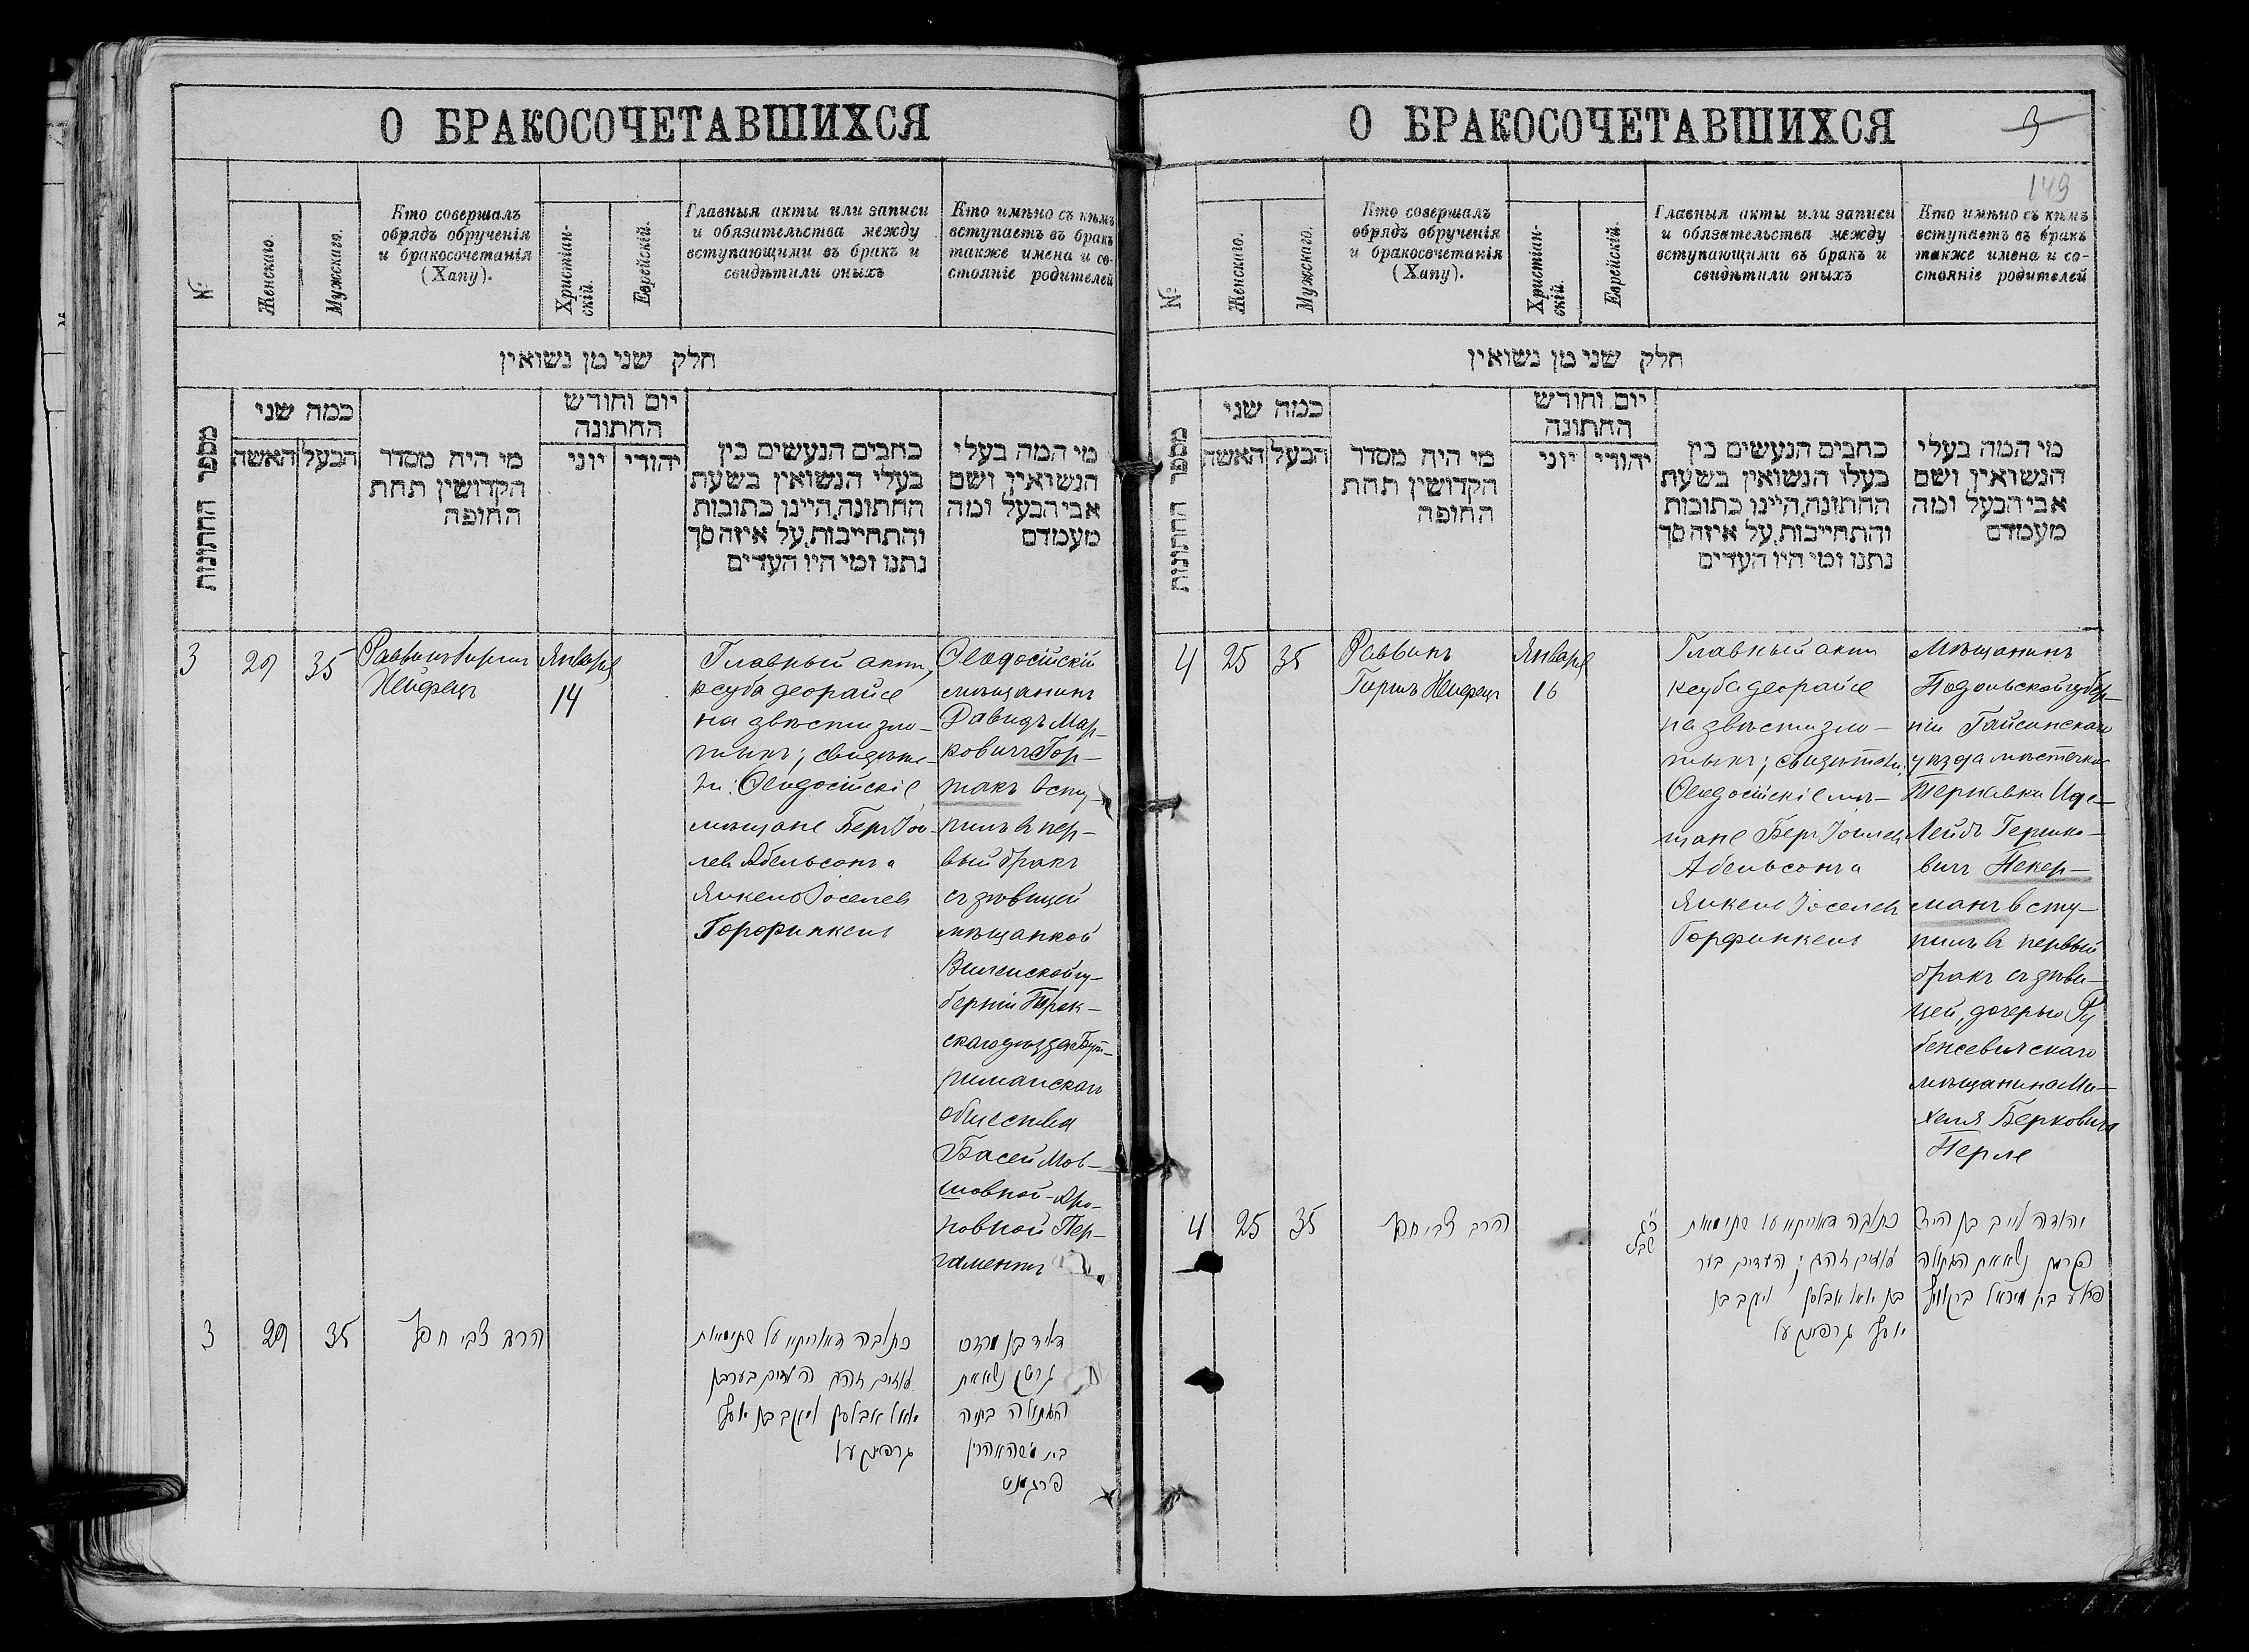 О БРАКОСОЧЕТАВШИХСЯ
№
Женскаго.
Мужскаго.
Кто совершалъ
обрядъ обрученія
и бракосочетанія
(Хапу).
Христіан-
скій.
Еврейскій.
Главныя акты или записи
и обязательства между
вступающими въ бракъ и
свидѣтили оныхъ
Кто имѣно съ кѣмъ
вступаетъ въ бракъ
также имена и со-
стояніе родителей
חלק שני מן נשואין
מספר החתונות
כמה שני
האשה
הבעל
מי היה מסדר
הקדושין תחת
החופה
יום וחודש
החתונה
יוני
יהודי
כתבים הנעשים בין
בעלי הנשואין בשעת
החתונה, היינו כתובות
והתחייבות, על איזה סך
נתנו ומי היו העדים
מי המה בעלי
הנשואין ושם
אבי הבעל ומה
מעמדם
3
29
35
Раввинъ Гиршъ
Хейфецъ
Января
14
Главный актъ,
ксуба деорайсе
на двѣсти зло-
тыхъ; свидѣте-
ли: Ѳеодосійскіе
мѣщане Беръ Іои-
лев Абельсонъ и
Янкель Іоселев
Горфинкель
Ѳеодосійскій
мѣщанинъ
Давидъ Мар-
ковичъ Гор-
такъ всту-
пилъ въ пер-
вый бракъ
съ дѣвицей
мѣщанкой
Виленской гу-
берніи Трок-
скаго уѣзда Бут-
риманскаго
общества
Басей Мов-
шовной-Аро-
новной Пер-
гаментъ
3
29
35
הרב צבי חפץ
כתובה דאורייתא על שתי מאות
זהובים העדים בער בן
יואל אבלסון יעקב בן יוסף
גרפינקעל
דוד בן מרדכי
נשא את
הבתולה בתיה
בת משה אהרן
פרגמנט
О БРАКОСОЧЕТАВШИХСЯ
9
149
№
Женскаго.
Мужскаго.
Кто совершалъ
обрядъ обрученія
и бракосочетанія
(Хапу).
Христіан-
скій.
Еврейскій.
Главныя акты или записи
и обязательства между
вступающими въ бракъ и
свидѣтили оныхъ
Кто имѣно съ кѣмъ
вступаетъ въ бракъ
также имена и со-
стояніе родителей
חלק שני מן נשואין
מספר החתונות
כמה שני
האשה
הבעל
מי היה מסדר
הקדושין תחת
החופה
יום וחודש
החתונה
יוני
יהודי
כתבים הנעשים בין
בעלי הנשואין בשעת
החתונה, היינו כתובות
והתחייבות, על איזה סך
נתנו ומי היו העדים
מי המה בעלי
הנשואין ושם
אבי הבעל ומה
מעמדם
4
25
35
Раввинъ
Гиршъ Хейфецъ
Января
16
Главный актъ
ксуба деорайсе
на двѣсти зло-
тыхъ; свидѣтели:
Ѳеодосійскіе мѣ-
щане Беръ Іоилев
Абельсонъ и
Янкель Іоселев
Горфинкель
Мѣщанинъ
Подольской губер-
ніи Гайсинскаго
уѣзда мѣстечка
Терновки Иде-
Лейбъ Гершко-
вичъ Пекер-
манъ всту-
пилъ въ первый
бракъ съ дѣви-
цей, дочерью Ру
бежевичскаго
мѣщанина Ми-
хеля Берковича
Перле
4
25
35
הרב צבי חפץ
שבט
כתובה דאורייתא על שתי מאות
זהובים; העדים בער
בן יואל אבלסון יעקב בן
יוסף גרפינקעל
יהודה לייב בן הירש
פקרמן נשא את הבתולה